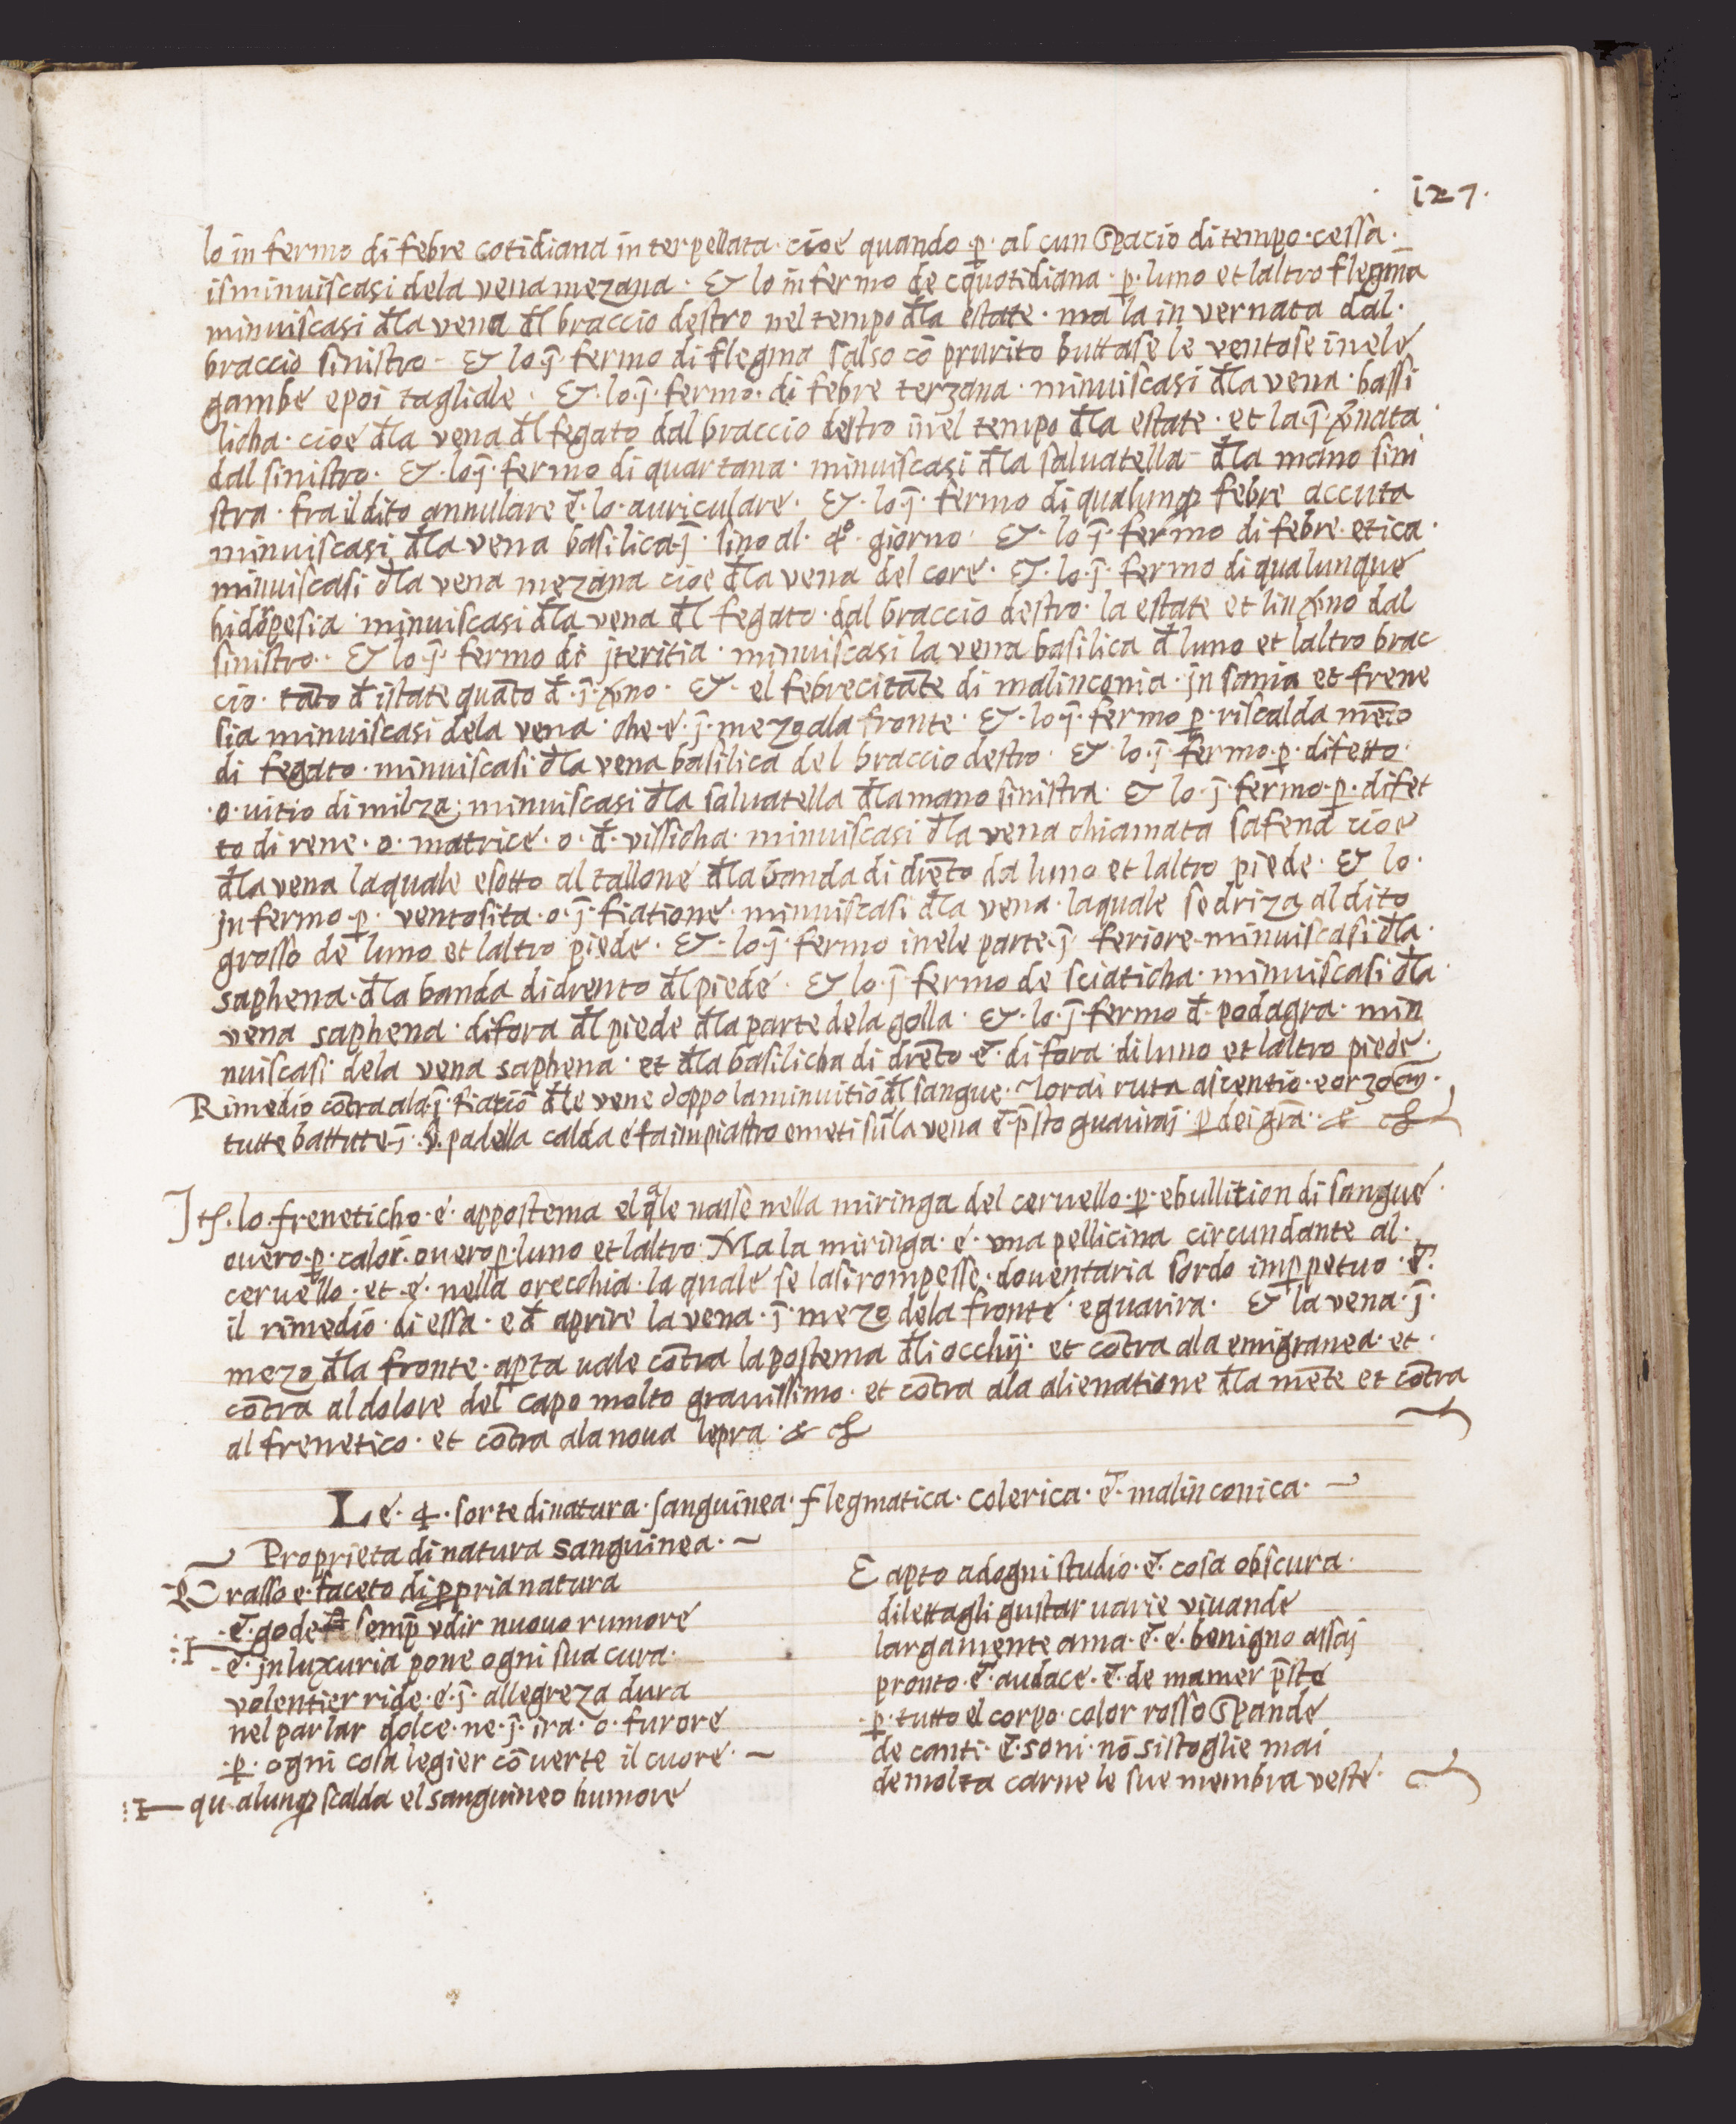 127.
lo in fermo di febre cotidiana in terpellata · cioe quando ꝑ · al cun spacio di tempo · cessa ·
isminuiscasi dela vena mezana · & lo in fermo de cquotidiana · ꝑ · luno et laltro flegma
minuiscasi đla vena đl braccio destro nel tempo đla estate · ma la in vernata dal ·
braccio sinistro - & lo · j̄ · fermo di flegma salso cō prurito buttase le ventose inele
gambe epoi tagliale · & · lo · j̄ · fermo · di febre terzana · minuiscasi đla vena · bassi
licha · cioe đla vena đl fegato dal braccio destro inel tempo đla estate · et la · j̄ · v̄nata
dal sinistro · & · lo j̄ · fermo di quartana · minuiscasi đla saluatella - đla mano sini
stra · fra il dito annulare ē · lo · auriculare · & · lo · j̄ · fermo di qualunqꝫ febre accuta
minuiscasi đla vena basilica · j̄ · sino al · 4° · giorno · & · lo j̄ · fermo di febre · etica ·
minuiscasi đla vena mezana cioe đla vena del core · & · lo · j̄ · fermo di qualunque
hidropesia minuiscasi đla vena đl fegato · dal braccio destro · la estate et lin v̄no dal
sinistro · · & lo · j̄ · fermo di jteritia · minuiscasi la vena basilica đ luno et laltro brac
cio · tāto đ istate quāto đ · j̄ · v̄no · & · el febrecitāte di malinconia · jn sania et frene
sia minuiscasi dela vena · che · e · j̄ · mezo ala fronte · & · lo · j̄ · fermo ꝑ · riscalda mēto
di fegato · minuiscasi đla vena basilica del braccio destro · & · lo · j̄ · fermo · ꝑ · difetto ·
· o · uitio di milza · minuiscasi đla saluatella đla mano sinistra · & lo · j̄ · fermo · ꝑ · difet
to di rene · o · matrice · o · đ · vissicha · minuiscasi đla vena chiamata safena cioe
đla vena laquale esotto al tallone đla banda di drēto da luno et laltro piede · & lo ·
jn fermo · ꝑ · ventosita · o · j̄ · fiatione · minuiscasi đla vena · laquale se driza al dito
grosso de luno et laltro piede · & · lo j̄ · fermo inele parte · j̄ · feriore · minuiscasi đla ·
saphena · đla banda didrento đl piede · & lo · j̄ fermo de sciaticha · minuiscasi đla ·
vena saphena · difora đl piede đla parte dela golla · & · lo · j̄ · fermo đ · podagra · min
nuiscasi dela vena saphena · et đla basilicha di drēto · ē · di fora · diluno et laltro piede ·
Rimedio cōtra ala · j̄ · fiatiō đle vene doppo la minuitiō đl sangue · Tordi ruta ascentio · e orzo
tutte battute · j̄ · padella calda e fa impiastro e meti su la vena ē · p̄sto guarirai · ꝑ dei gr̄a ·
Itē · lo · freneticho · e · appostema el qle nasse nella miringa del ceruello · ꝑ · ebullition di sangue ·
ouero · ꝑ · calor · ouero ꝑ · luno et laltro · Ma la miringa · e · vna pellicina circundante al ·
ceruello · et · e · nella orecchia · la quale se lasi rompesse · douentaria sordo imꝑpetuo · ē ·
il rimedio · di essa · eđ aprire la vena · j̄ · mezo dela fronte · e guarira · & la vena · j̄ ·
mezo đla fronte · aꝑta uale cōtra lapostema đli occhij · et cōtra ala emigranea · et ·
cōtra al dolore del capo molto grauissimo · et cōtra ala alienatione đla mēte et cōtra
al frenetico · et cōtra ala noua lepra ·
Le · 4 · sorte di natura · sanguinea · flegmatica · colerica · ē · malinconica ·
Proprieta di natura sanguinea ·
Grasso e · faceto di ꝓpria natura
· ē · gode semꝑ vdir nuouo rumore
· ē · jn luxuria pone ogni sua cura ·
volentier ride · e · j̄ · allegreza dura
nel parlar dolce · ne · j̄ · ira · o · furore
· ꝑ · ogni cosa legier cōuerte il cuore ·
qualunqꝫ scalda el sanguineo humore
E apto adogni studio · ē · cosa obscura ·
dilettagli gustar uarie viuande
largamente ama · ē · e · benigno assaj
pronto · ē · audace · ē · de mamer p̄sto
· ꝑ · tutto el corpo · color rosso spande
de canti · ē · soni · nō sistoglie mai
de molta carne le sue membra veste ·